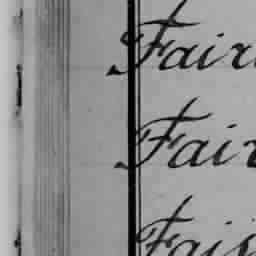 Fair
Fair
Fais